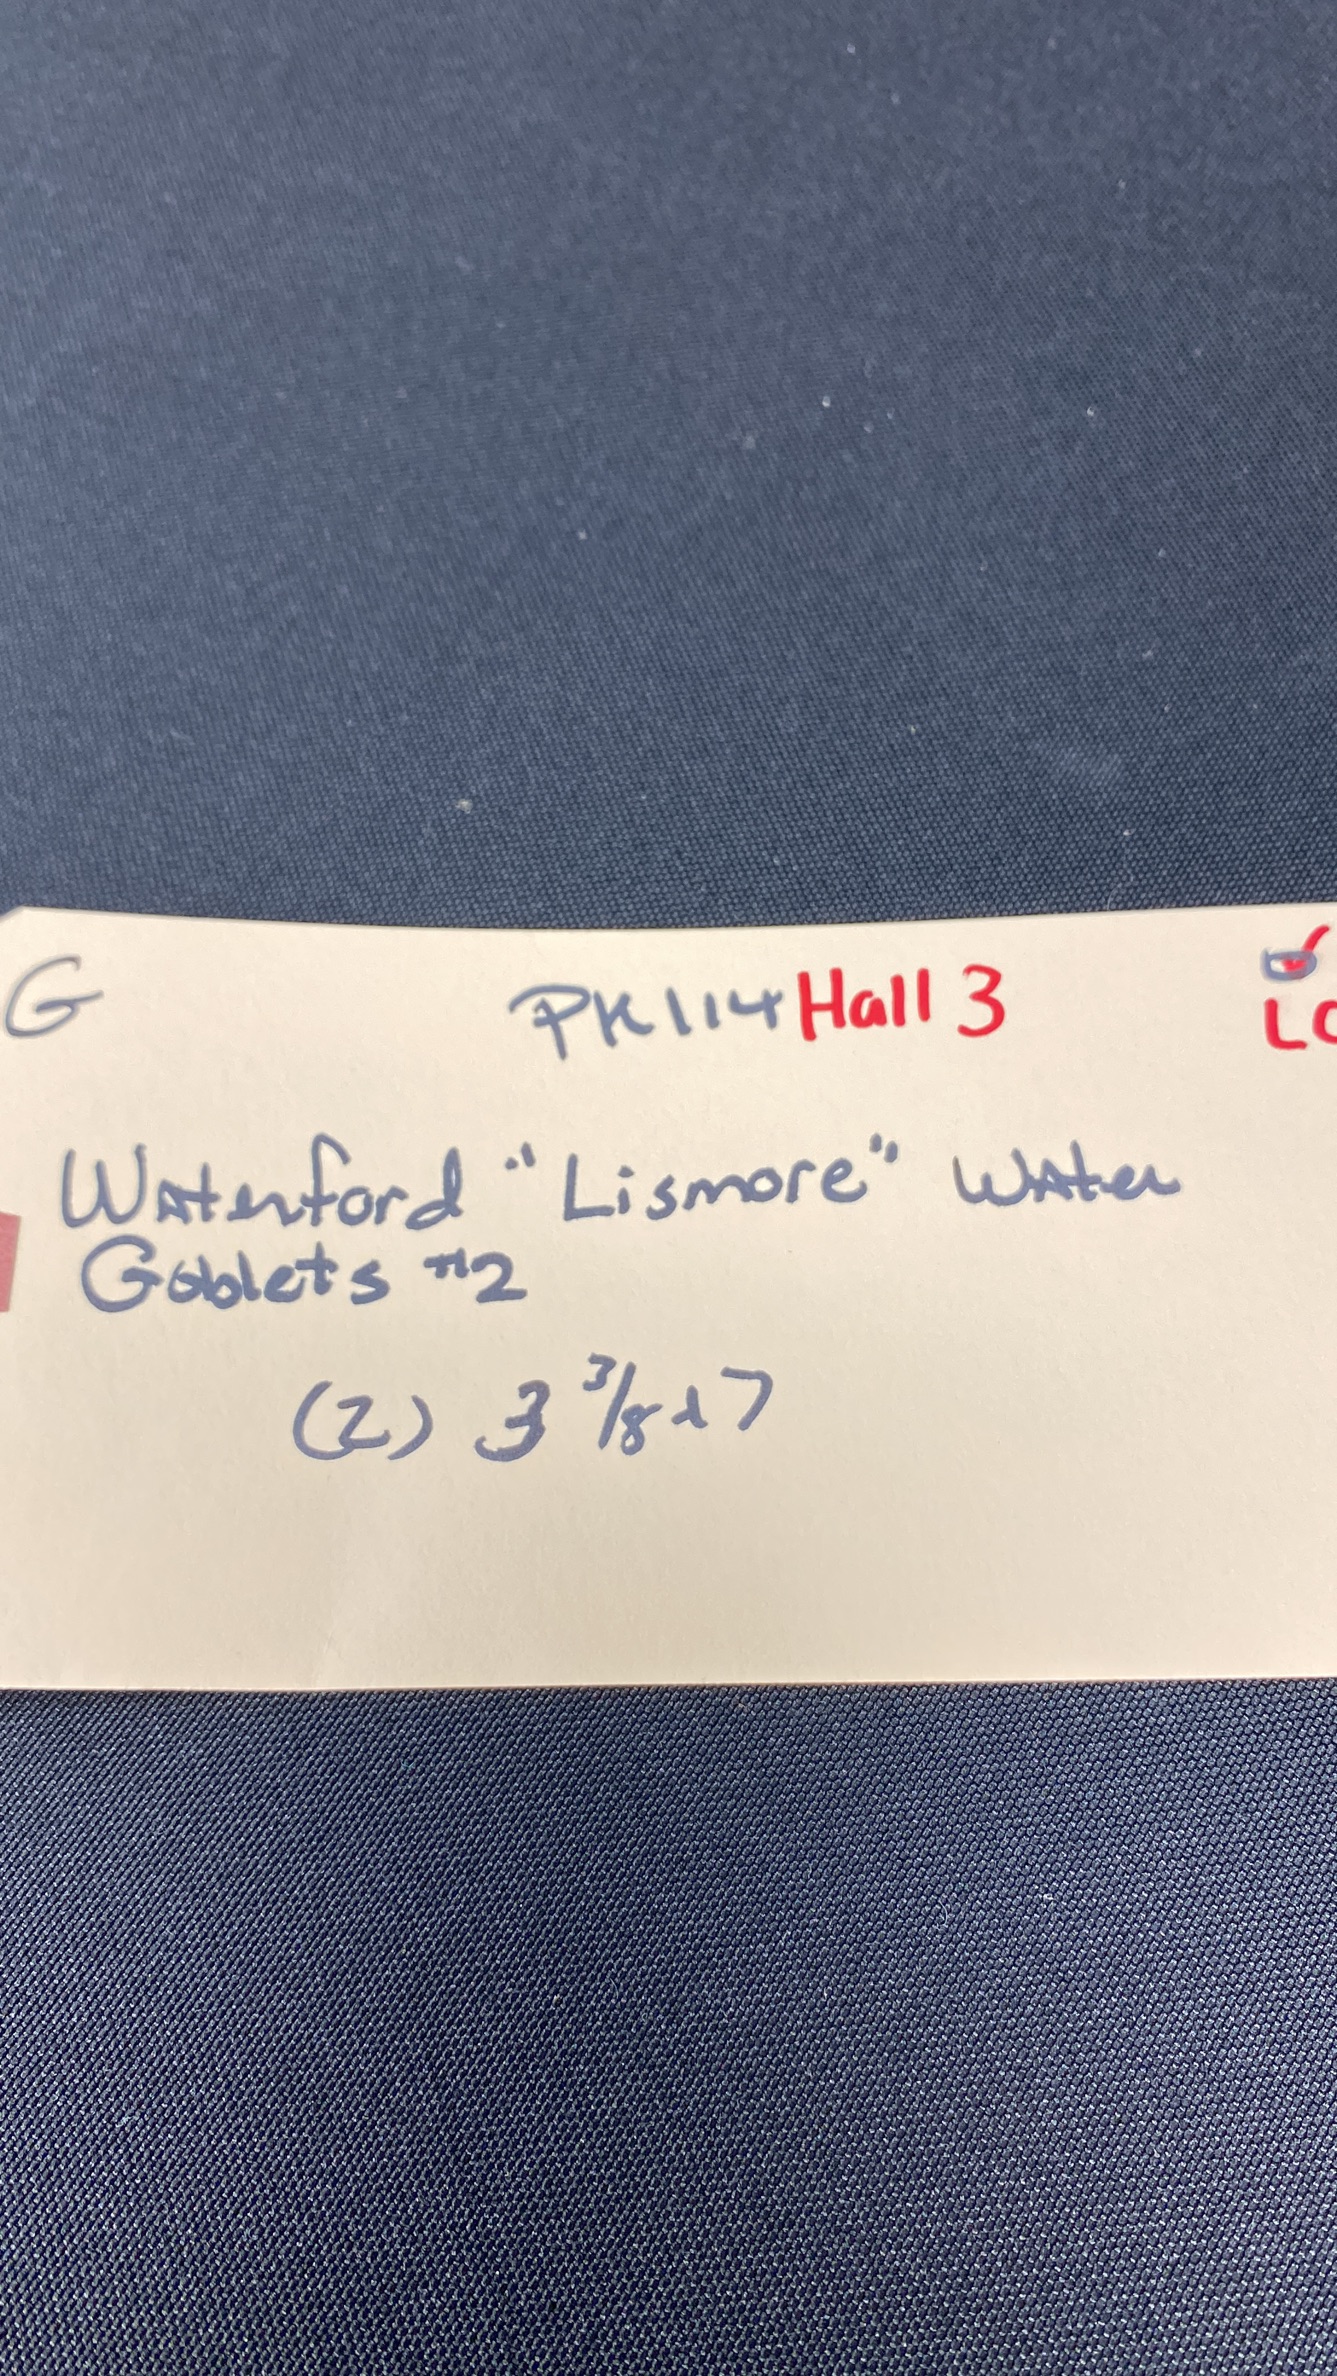 G PK114 Hall 3
LO
Waterford "Lismore" Water
Goblets #2
(2) 3 3/8 x 7